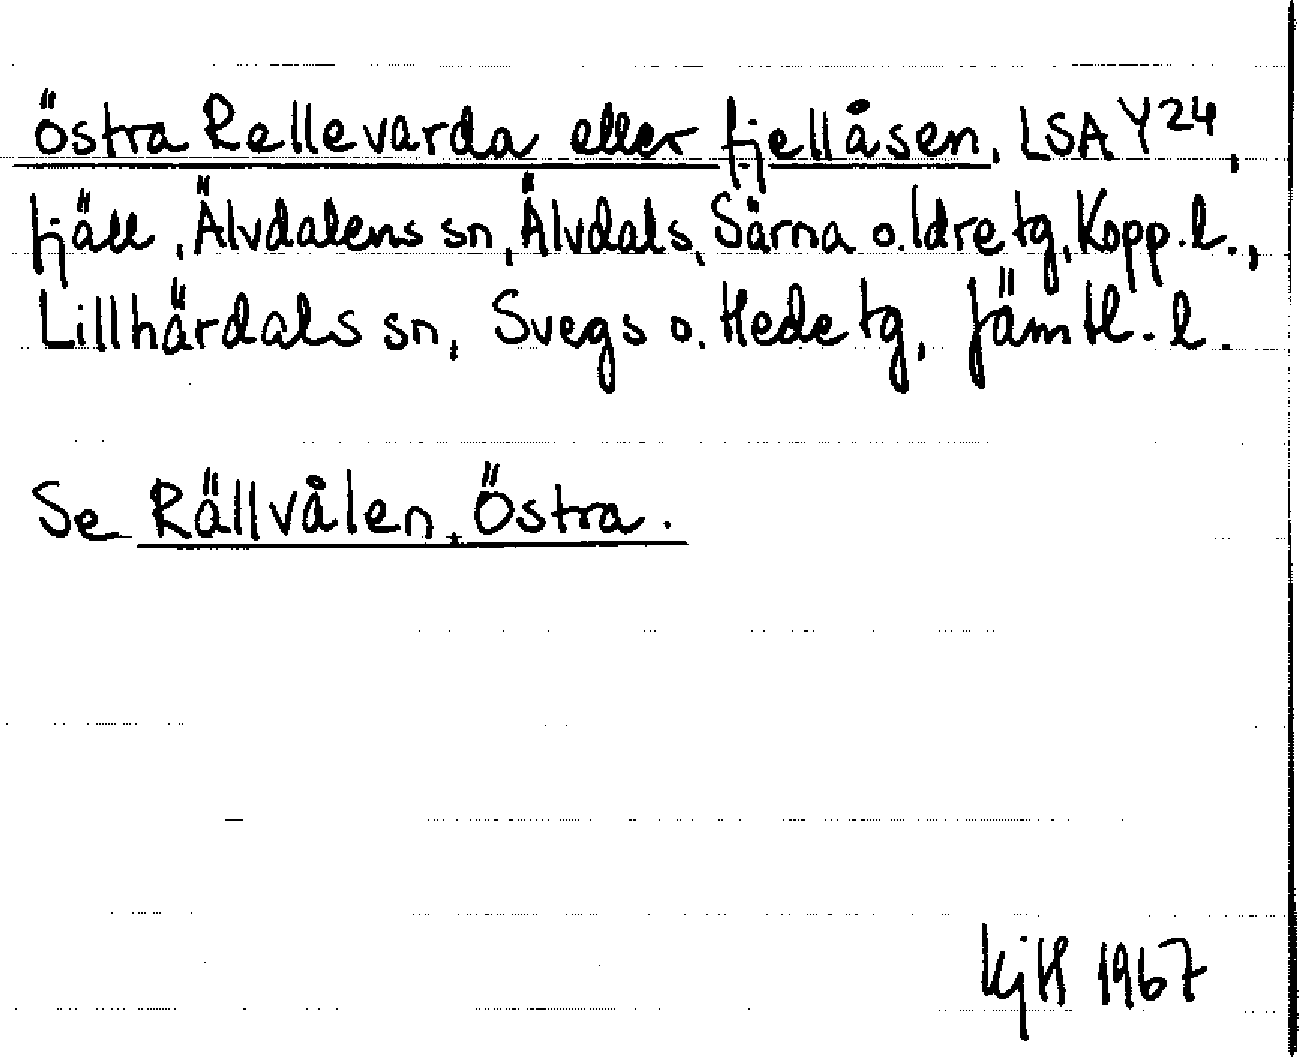 Östra Rellevarda eller fjellåsen, LSA Y24,
fjäll, Älvdalens sn, Älvdals, Särna o. Idre tg, Kopp. l.,
Lillhärdals sn, Svegs o. Hede tg, Jämtl. l.
Se Rällvålen, Östra.
KjH 1967